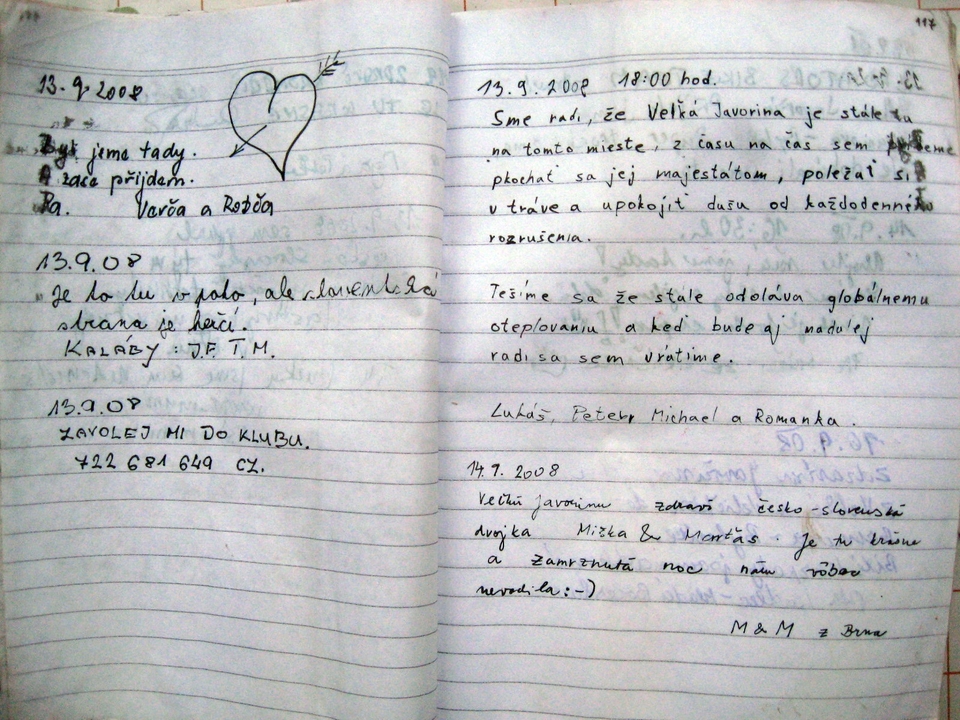 13.9.2008
Byli jsme tady.
A zase přijdem.
Pa. Verča a Robča
13.9.08
Je to tu v poho, ale slovenská
strana je hezčí.
KALÁBY : J.F. T.M.
13.9.08
ZAVOLEJ MI DO KLUBU.
722 681 649 CZ.
117
13.9.2008 18:00 hod.
Sme radi, že Veľká Javorina je stále tu
na tomto mieste, z času na čas sem
pkochať sa jej majestátom, poležať si
v tráve a upokojiť dušu od každodenného
rozrušenia.
Tešíme sa že stale odoláva globálnemu
otepľovaniu a keď bude aj naďalej
radi sa sem vrátime.
Lukáš, Peter, Michael a Romanka.
14.9.2008
Veľkú Javorinu zdraví česko-slovenská
dvojka Miška & Matňáš. Je tu krásne
a zamrznutá noc nám vôbec
nevadila :-)
M & M z Brna